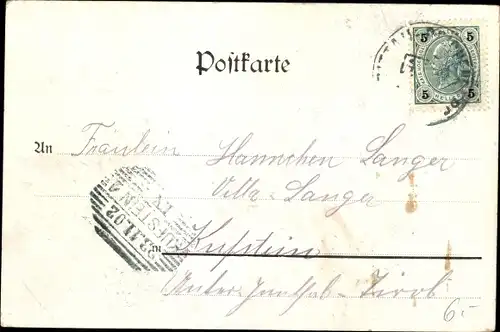 5 5
Postkarte
HELLER
5 5
An Fräulein Hannchen Langer
Villa Langer
23.11.02
KUFSTEIN
in Kufstein
Unter Innthal-Tirol
6.-